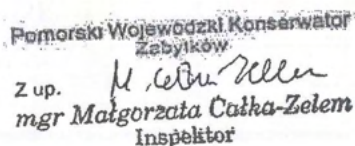 Pomorski Wojewódzki Konserwator
Zabytków
Z up.
mgr Małgorzata Całka-Zelem
Inspektor